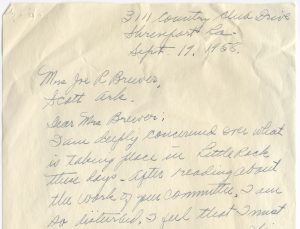 3111 Country Club Drive
Shreveport La.
Sept. 19, 1958.
Mrs Joe R Brewer,
Scott Ark.
Dear Mrs Brewer:
I am deeply concerned over what
is taking place in Little Rock
these days. After reading about
the work of your committee, I am
so disturbed, I feel that I must